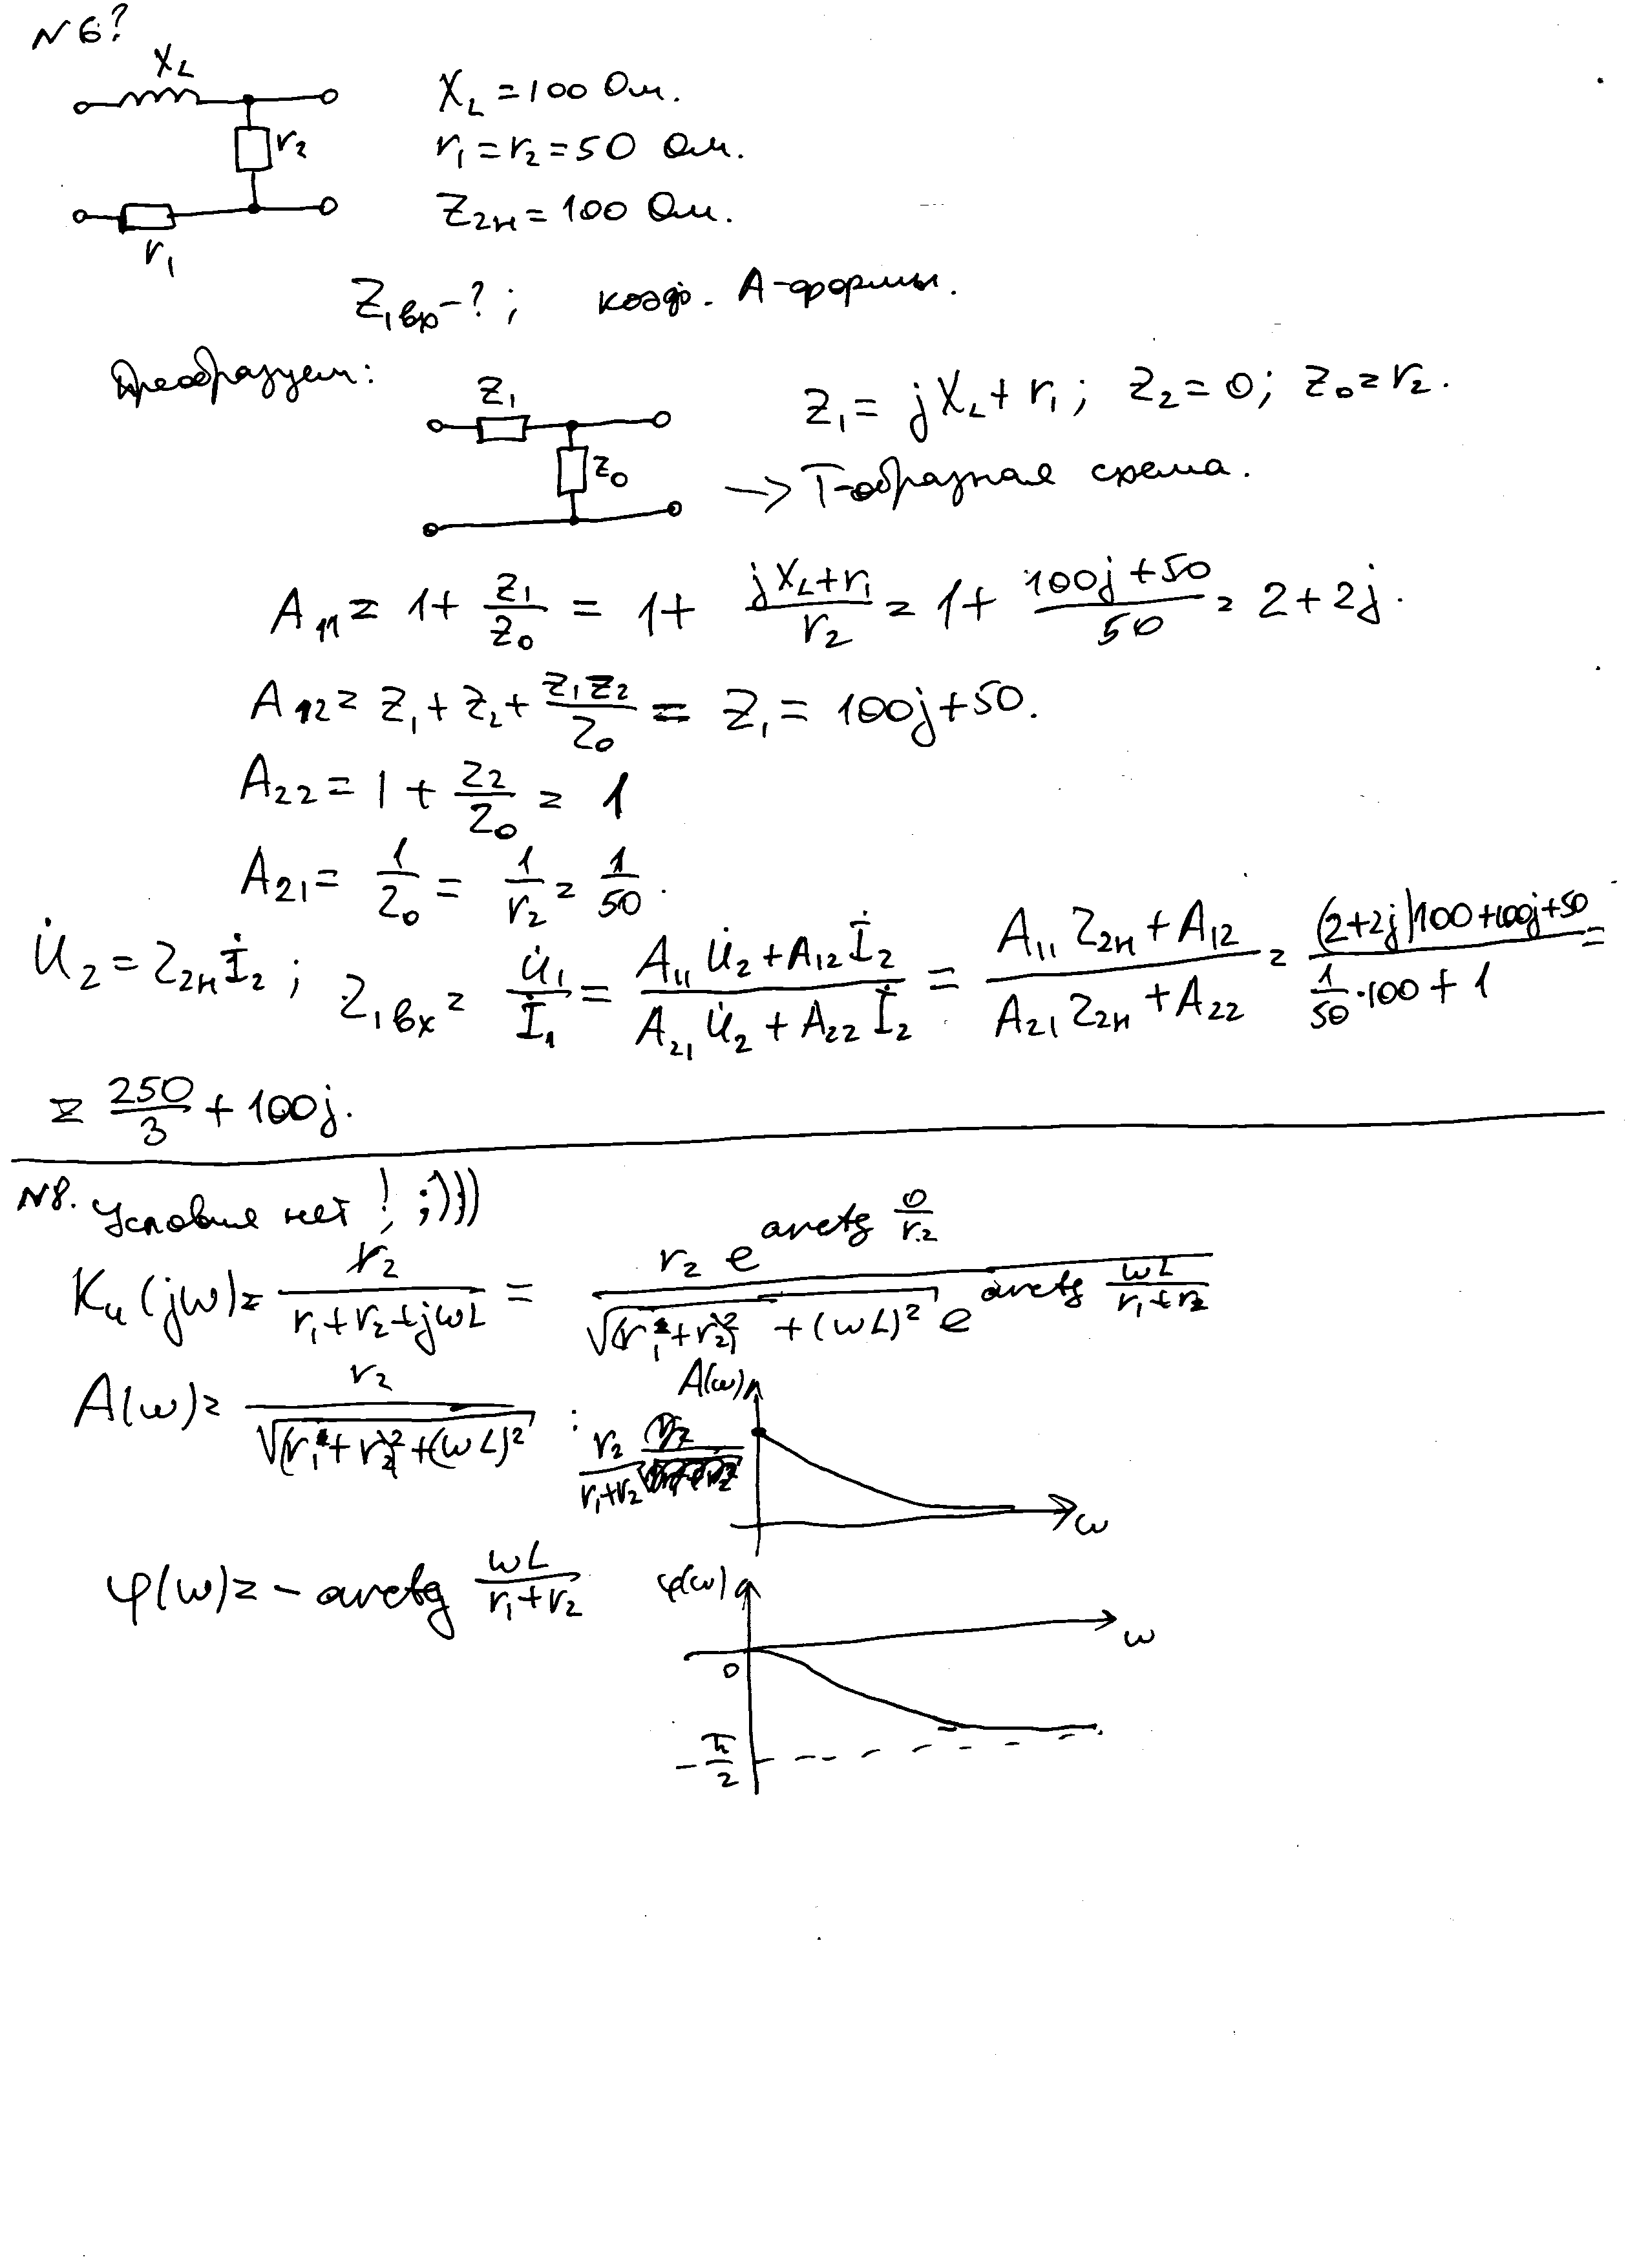 N6?
X_L
X_L = 100 Ом.
r₂
r₁ = r₂ = 50 Ом.
Z₂н = 100 Ом.
r₁
Z₁вх - ?; коэф. А-формы.
Преобразуем:
Z₁
Z₁ = jX_L + r₁; Z₂ = 0; Z₀ = r₂.
Z₀
→ Т-образная схема.
A₁₁ = 1 + Z₁/Z₀ = 1 + (jX_L + r₁)/r₂ = 1 + (100j + 50)/50 = 2 + 2j.
A₁₂ = Z₁ + Z₂ + Z₁Z₂/Z₀ = Z₁ = 100j + 50.
A₂₂ = 1 + Z₂/Z₀ = 1
A₂₁ = 1/Z₀ = 1/r₂ = 1/50.
U̇₂ = Z₂н İ₂; Z₁вх = U̇₁/İ₁ = (A₁₁ U̇₂ + A₁₂ İ₂)/(A₂₁ U̇₂ + A₂₂ İ₂) = (A₁₁ Z₂н + A₁₂)/(A₂₁ Z₂н + A₂₂) = ((2+2j)100 + 100j + 50)/(1/50 · 100 + 1) =
= 250/3 + 100j.
N8. Условия нет! ;)))
Kᵤ(jω) = r₂/(r₁ + r₂ + jωL) = (r₂ e^(arctg 0/r₂))/(√((r₁ + r₂)² + (ωL)²) e^(arctg ωL/(r₁ + r₂)))
A(ω) = r₂/√((r₁ + r₂)² + (ωL)²) :
A(ω)
r₂/(r₁ + r₂)
ω
φ(ω) = - arctg ωL/(r₁ + r₂)
φ(ω)
ω
0
-π/2